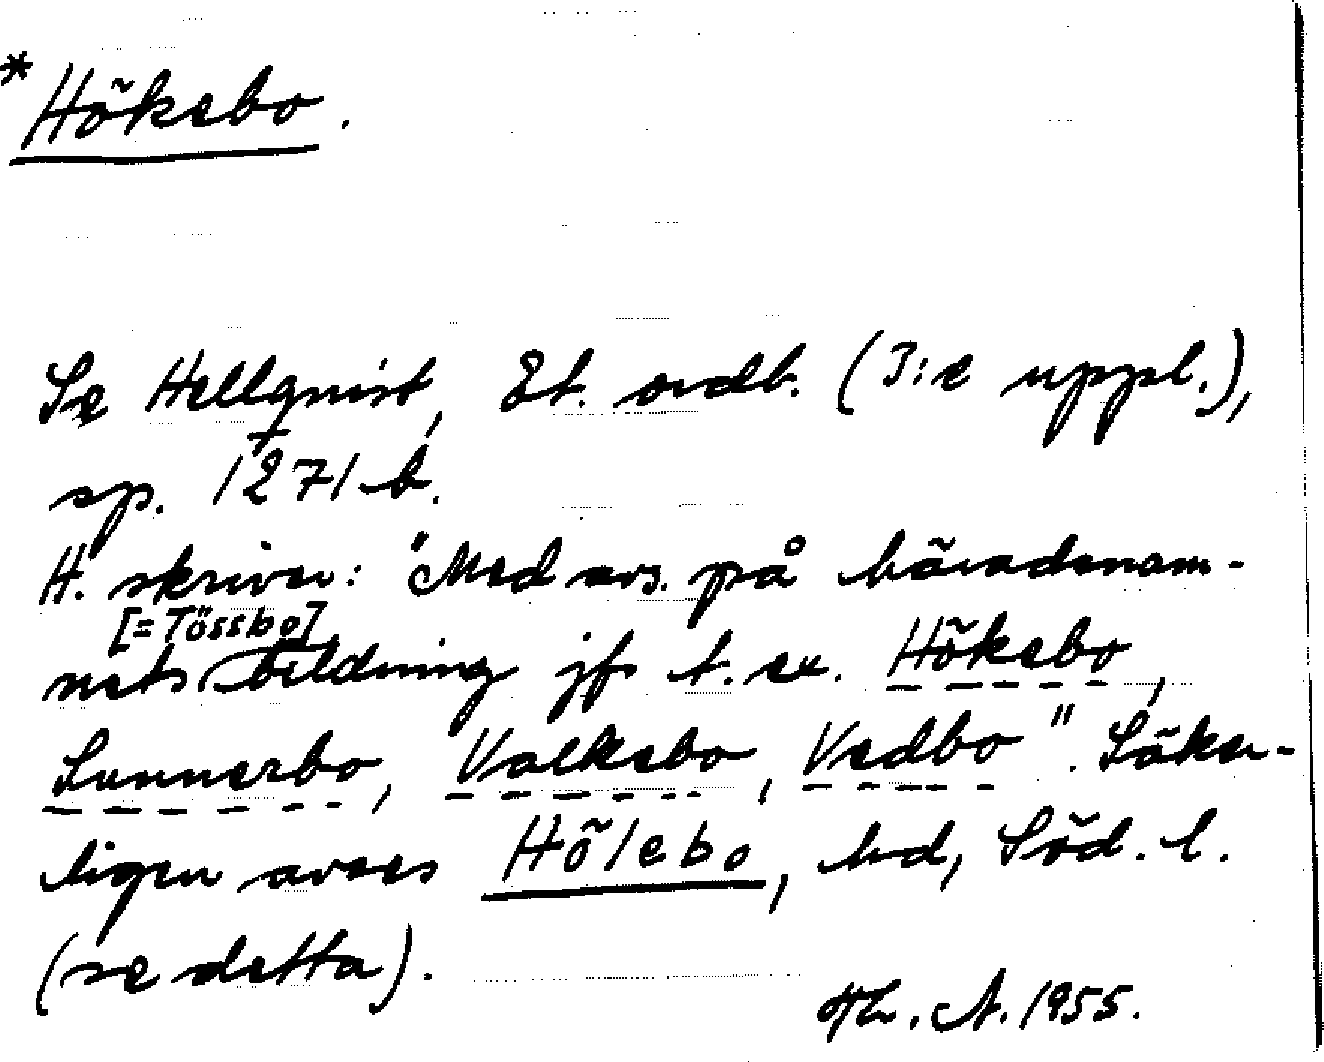 *Höksbo.
Se Hellquist, Et. ordb. (3:e uppl.),
sp. 1271 b.
H. skriver: "Med avs. på häradsnam-
[=Tössbo]
nets bildning jfr t. ex. Höksbo,
Sunnerbo, Valksbo, Vedbo". Säker-
ligen avses Hölebo, hd, Söd. l.
(se detta).
Th. A. 1955.